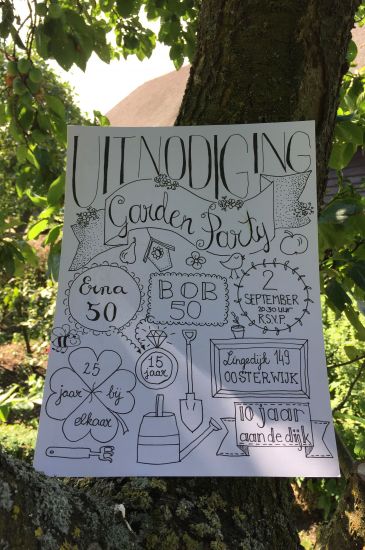 UITNODIGING
Garden Party
Erna
50
BOB
50
2
SEPTEMBER
20.30 uur
R.S.V.P.
25
jaar bij
elkaar
15
jaar
Lingedijk 149
OOSTERWIJK
10 jaar
aan de dijk